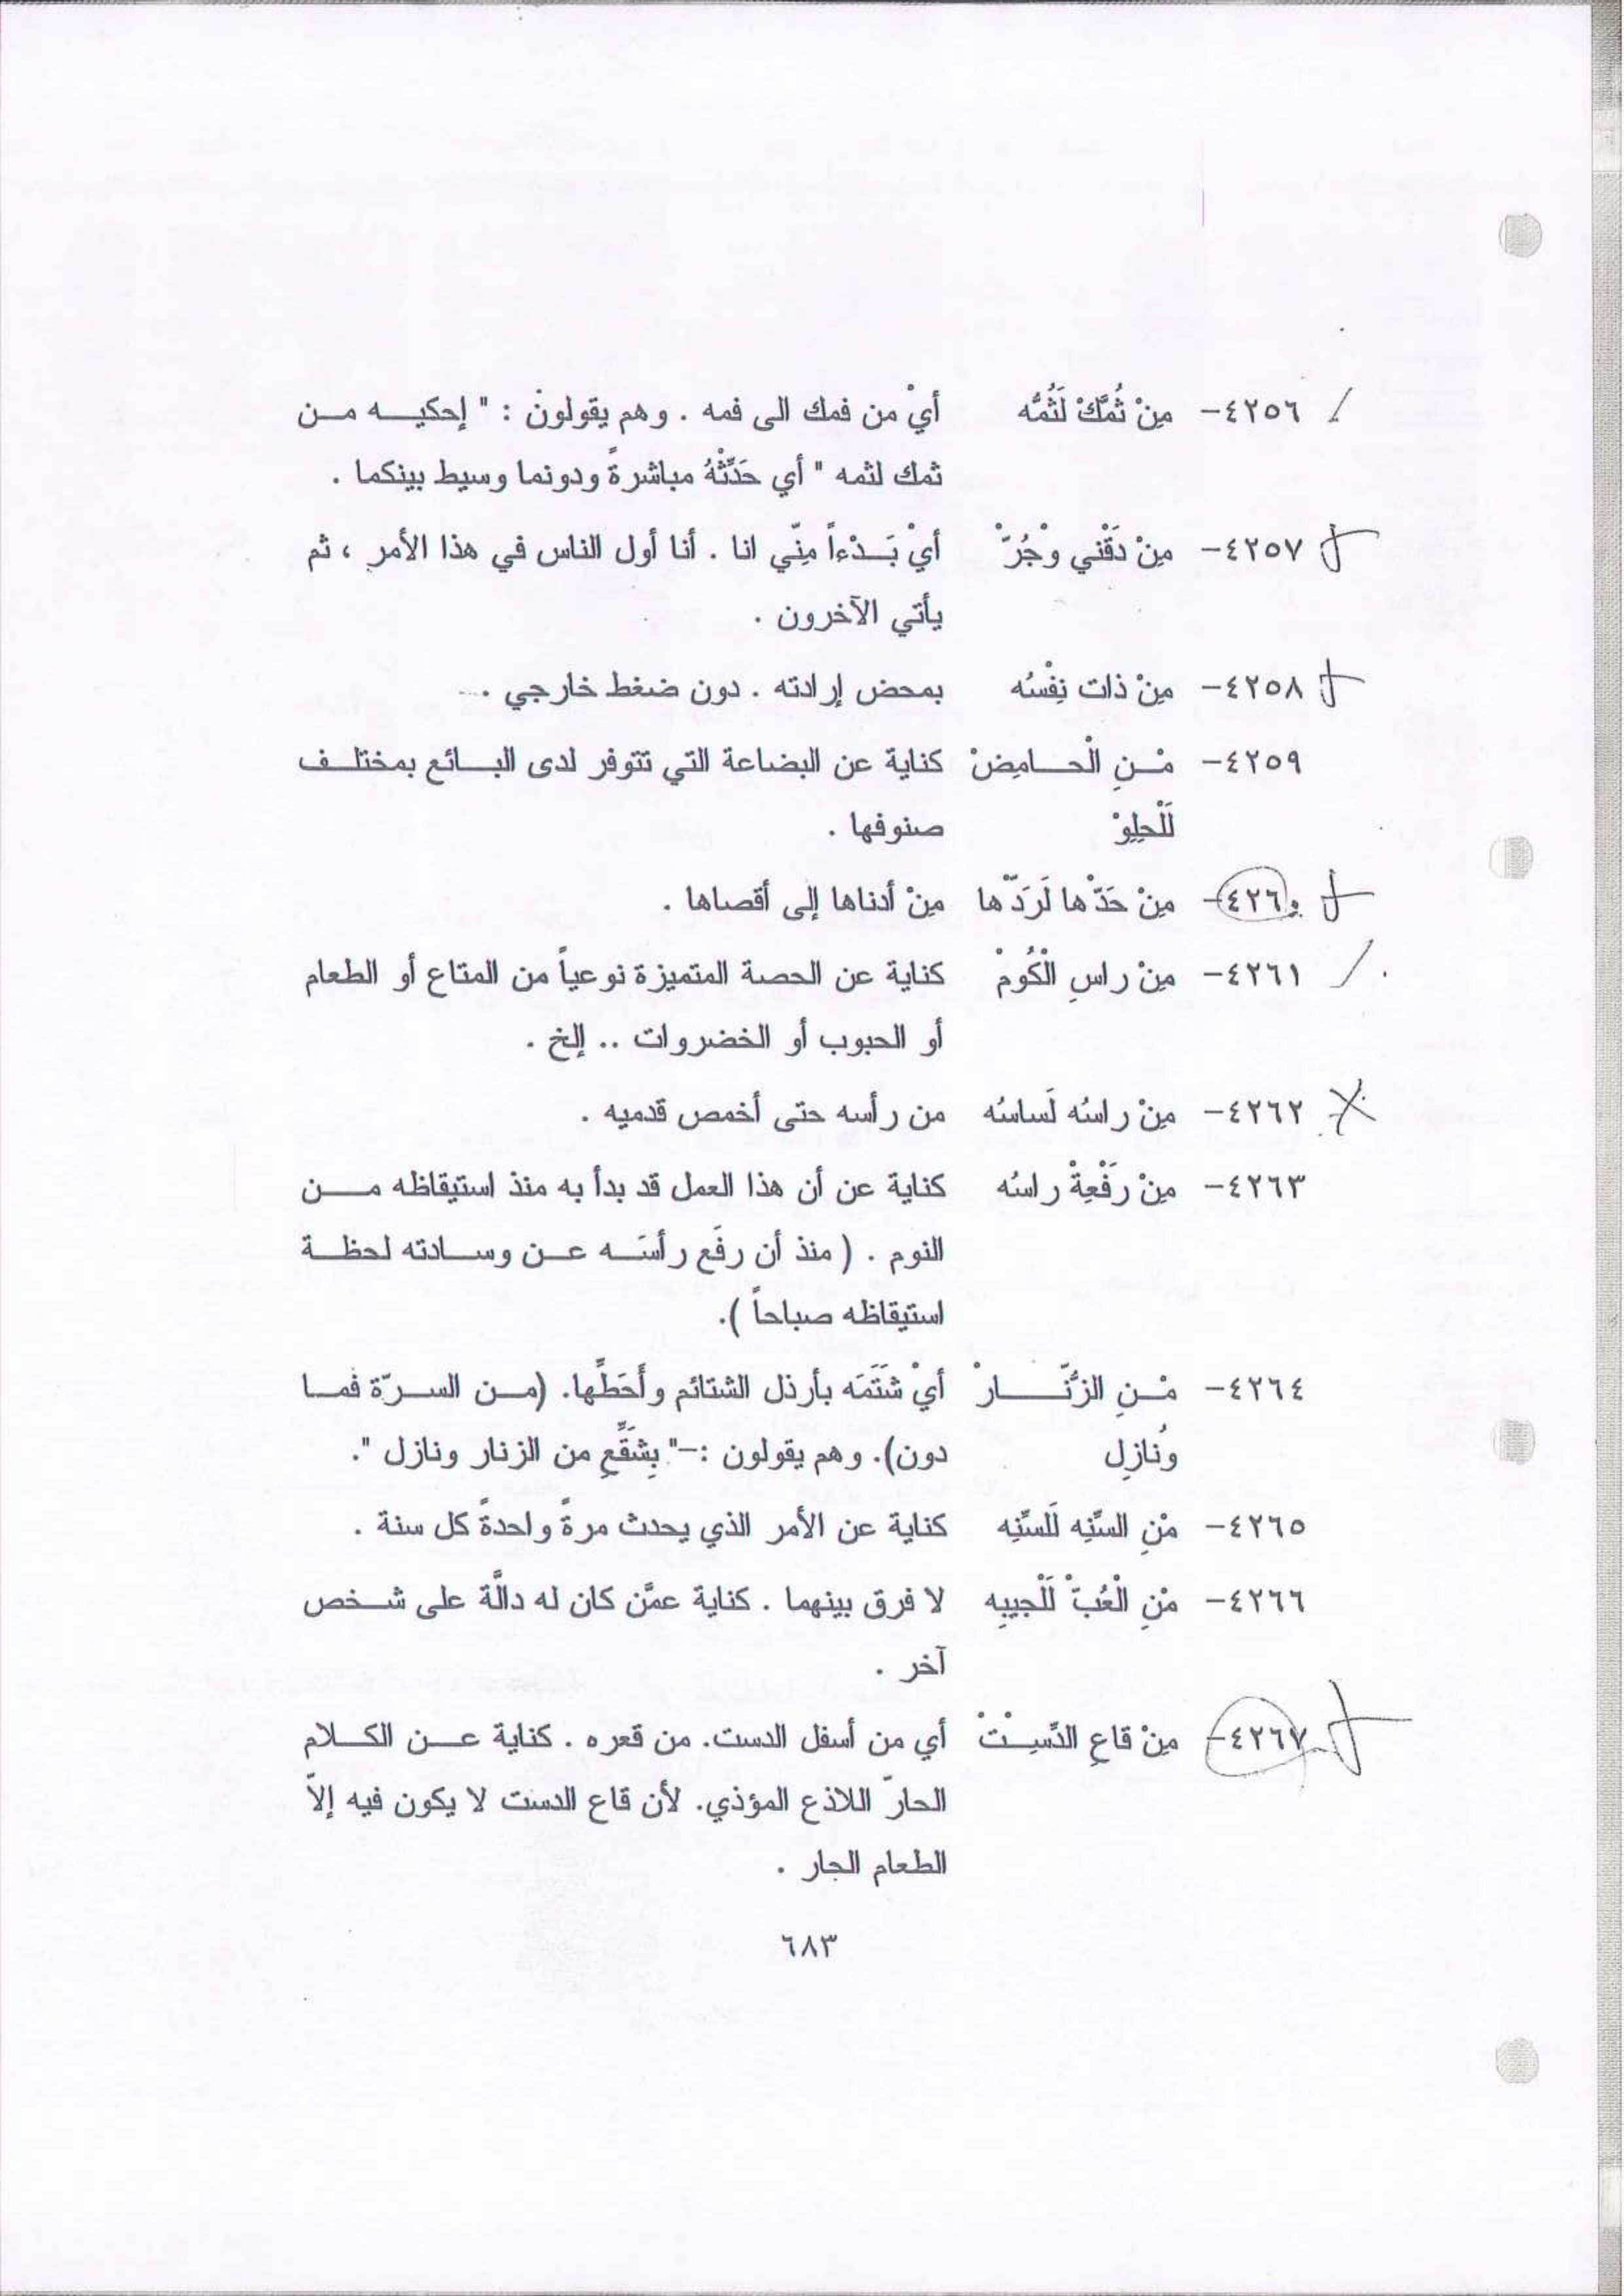 ٤٢٥٦- مِنْ ثُمَّكْ لَثُمُّه أيْ من فمك الى فمه . وهم يقولونْ : " إحكيـــه مـــن
ثمك لثمه " أي حَدِّثْهُ مباشرةً ودونما وسيط بينكما .
٤٢٥٧- مِنْ دَقْني وْجُرّْ أيْ بَـــدْءاً مِنّي انا . أنا أول الناس في هذا الأمر ، ثم
يأتي الآخرون .
٤٢٥٨- مِنْ ذات نِفْسُه بمحض إرادته . دون ضغط خارجي .
٤٢٥٩- مْـــنِ الْحـــامِضْ كناية عن البضاعة التي تتوفر لدى البـــائع بمختلـــف
لَلْحِلِوْ صنوفها .
٤٢٦٠- مِنْ حَدّْها لَرَدّْها مِنْ أدناها إلى أقصاها .
٤٢٦١- مِنْ راسِ الْكُومْ كناية عن الحصة المتميزة نوعياً من المتاع أو الطعام
أو الحبوب أو الخضروات .. إلخ .
٤٢٦٢- مِنْ راسُه لَساسُه من رأسه حتى أخمص قدميه .
٤٢٦٣- مِنْ رَفْعِةْ راسُه كناية عن أن هذا العمل قد بدأ به منذ استيقاظه مـــن
النوم . ( منذ أن رفَع رأسَـــه عـــن وســـادته لحظـــة
استيقاظه صباحاً ).
٤٢٦٤- مْـــنِ الزُّنّـــــارْ أيْ شَتَمَه بأرذل الشتائم وأَحَطِّها. (مـــن الســـرّة فمـــا
ونازِل دون). وهم يقولون :-" بِشَقِّع من الزنار ونازل ".
٤٢٦٥- مْنِ السِّنِه لَلسِّنِه كناية عن الأمر الذي يحدث مرةً واحدةً كل سنة .
٤٢٦٦- مْنِ الْعُبّْ لَلْجيبِه لا فرق بينهما . كناية عمَّن كان له دالَّة على شـــخص
آخر .
٤٢٦٧- مِنْ قاعِ الدِّسِـــتْ أي من أسفل الدست. من قعره . كناية عـــن الكـــلام
الحارّ اللاذع المؤذي. لأن قاع الدست لا يكون فيه إلاّ
الطعام الحار .
٦٨٣